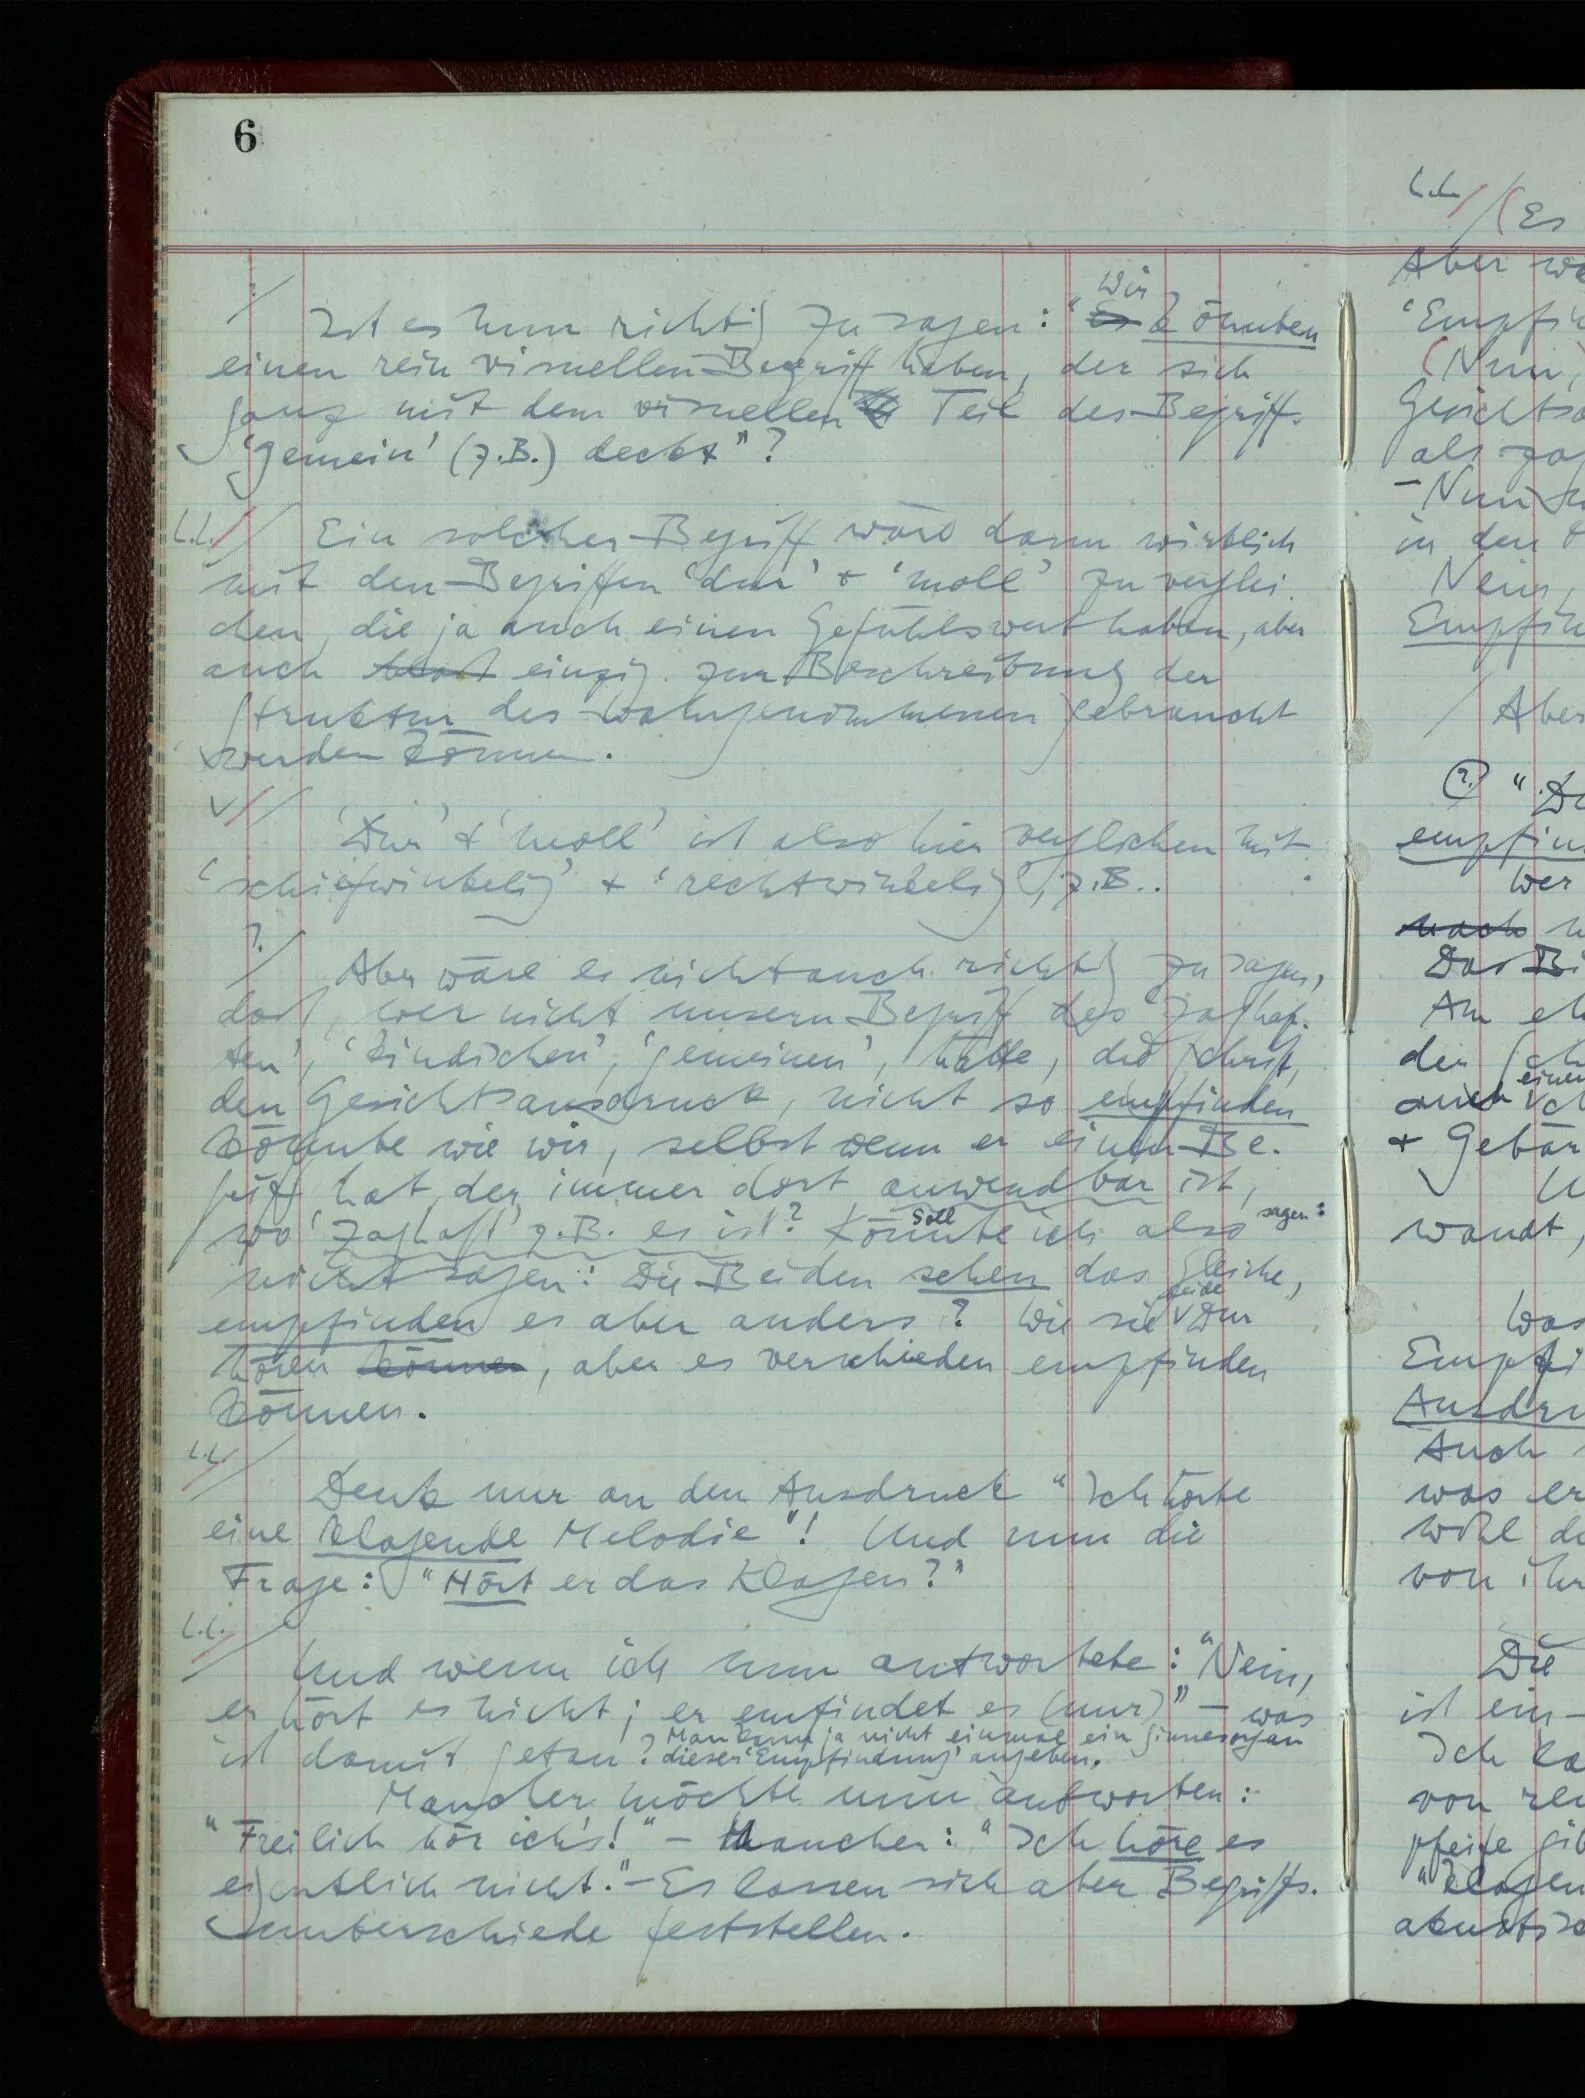 6
Ist es nun richtig zu sagen: "Es Wir könnten
einen rein visuellen Begriff haben, der sich
ganz mit dem visuellen Teil des Begriffs
'gemein' (z.B.) deckt"?
Ein solcher Begriff wäre dann wirklich
mit den Begriffen 'dur' + 'moll' zu verglei-
chen, die ja auch einen Gefühlswert haben, aber
auch bloß einzig zur Beschreibung der
Struktur des Wahrgenommenen gebraucht
werden können.
'Dur' + 'moll' ist also hier verglichen mit
'schiefwinkelig' + 'rechtwinkelig', z.B..
?
Aber wäre es nicht auch richtig zu sagen,
daß, wer nicht unsern Begriff des 'zaghaf-
ten', 'kindischen', 'gemeinen', hätte, die Schrift,
den Gesichtsausdruck, nicht so empfinden
könnte wie wir, selbst wenn er einen Be-
griff hat, der immer dort anwendbar ist,
wo 'zaghaft' z.B. es ist? Könnte Soll ich also sagen:
nicht sagen: Die Beiden sehen das Gleiche,
empfinden es aber anders? Wie sie beide Dur
hören können, aber es verschieden empfinden
können.
Denk nur an den Ausdruck "Ich hörte
eine klagende Melodie"! Und nun die
Frage: "Hört er das Klagen?"
Und wenn ich nun antwortete: "Nein,
er hört es nicht; er emfindet es (nur)" – was
ist damit getan? Man kann ja nicht einmal ein Sinnesorgan
dieser 'Empfindung' angeben.
Mancher möchte nun antworten:
"Freilich hör ich's!" – Mancher: "Ich höre es
eigentlich nicht." – Es lassen sich aber Begriffs-
unterschiede feststellen.
(Es
Aber
(Nun,
als
– Nun
in den
Nein,
Aber
(?)
Wer
nach
Am
+ Gebär
wandt,
Was
Auch
was er
wohl
von ihr
Die
ist ein
Ich
von